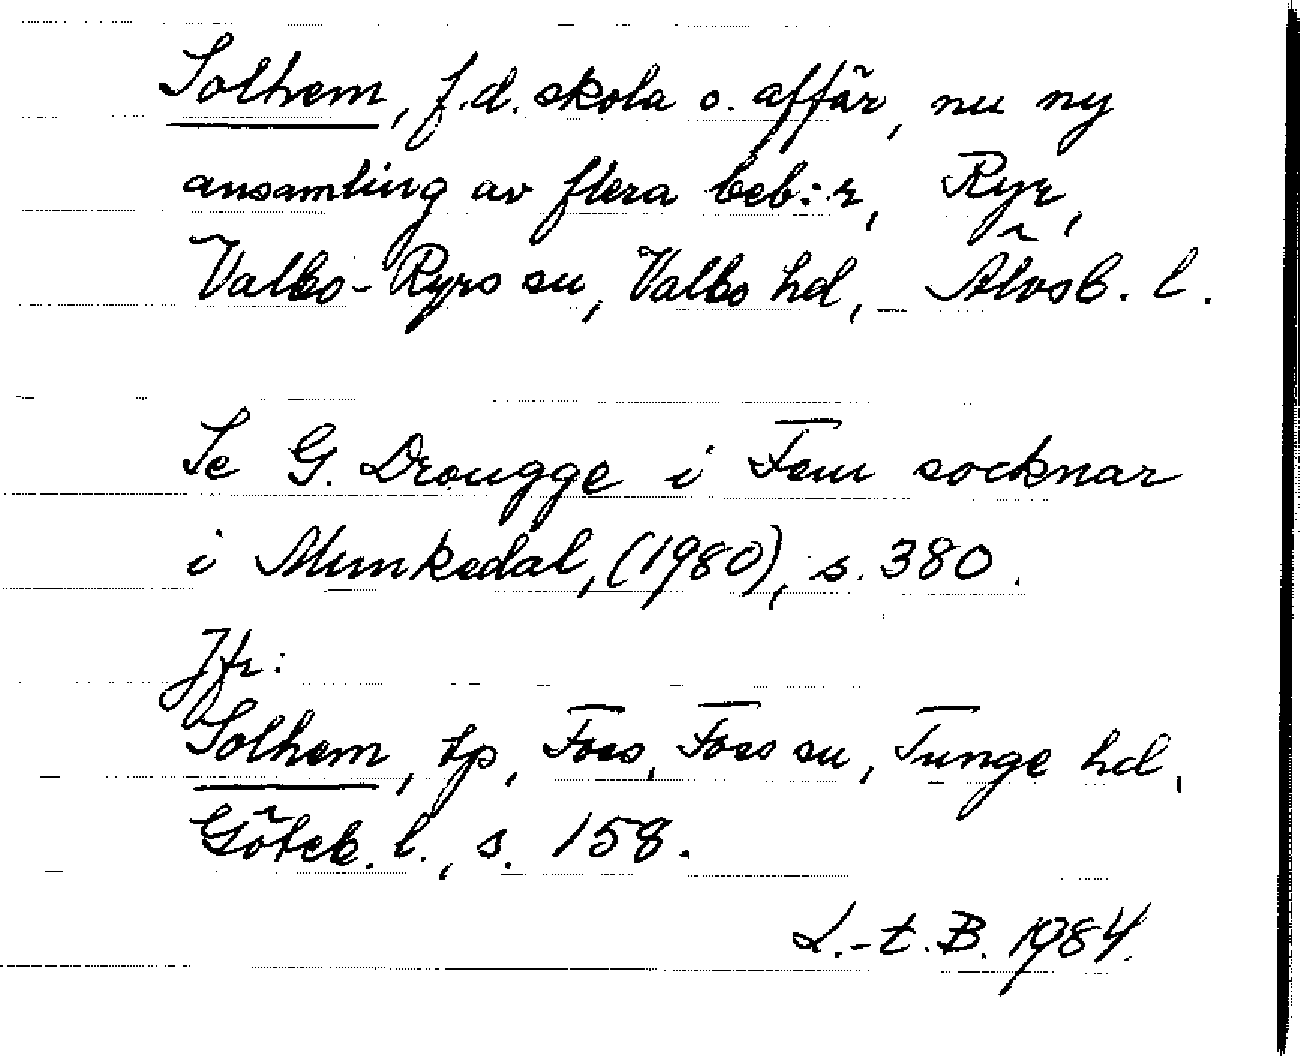 Solhem, f.d. skola o. affär, nu ny
ansamling av flera beb:r, Ryr,
Valbo-Ryrs sn, Valbo hd, Älvsb. l.
Se G. Drougge i Fem socknar
i Munkedal, (1980), s. 380.
Jfr:
Solhem, tp, Foss, Foss sn, Tunge hd,
Göteb. l., s. 158.
L.-t. B. 1984.